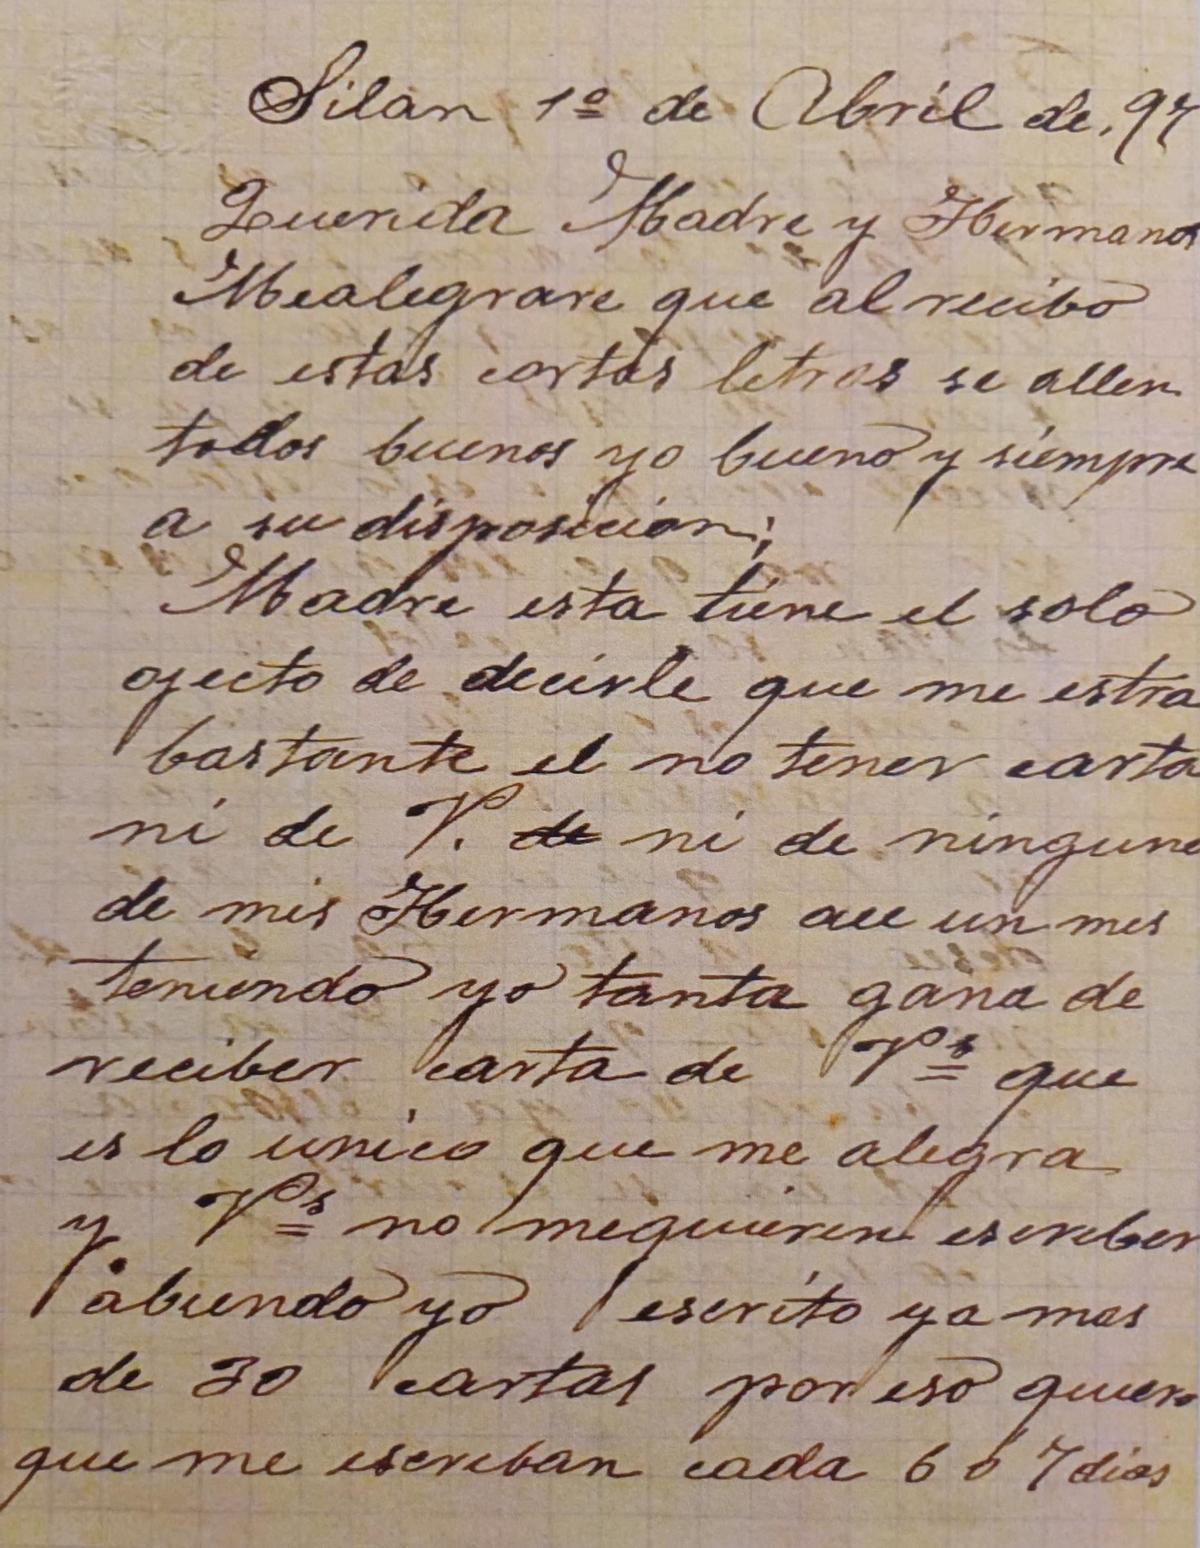 Silan 1º de Abril de, 97
Querida Madre y Hermanos
Mealegrare que al recibo
de estas cortas letras se allen
todos buenos yo bueno y siempre
a su disposicion;
Madre esta tiene el solo
ojecto de decirle que me estra
bastante el no tener carta
ni de V. de ni de ninguno
de mis Hermanos ace un mes
teniendo yo tanta gana de
reciber carta de Vs que
es lo unico que me alegra
y Vs no mequieren escreber
abiendo yo escrito ya mas
de 30 cartas por eso quiero
que me escreban cada 6 ó 7 dias